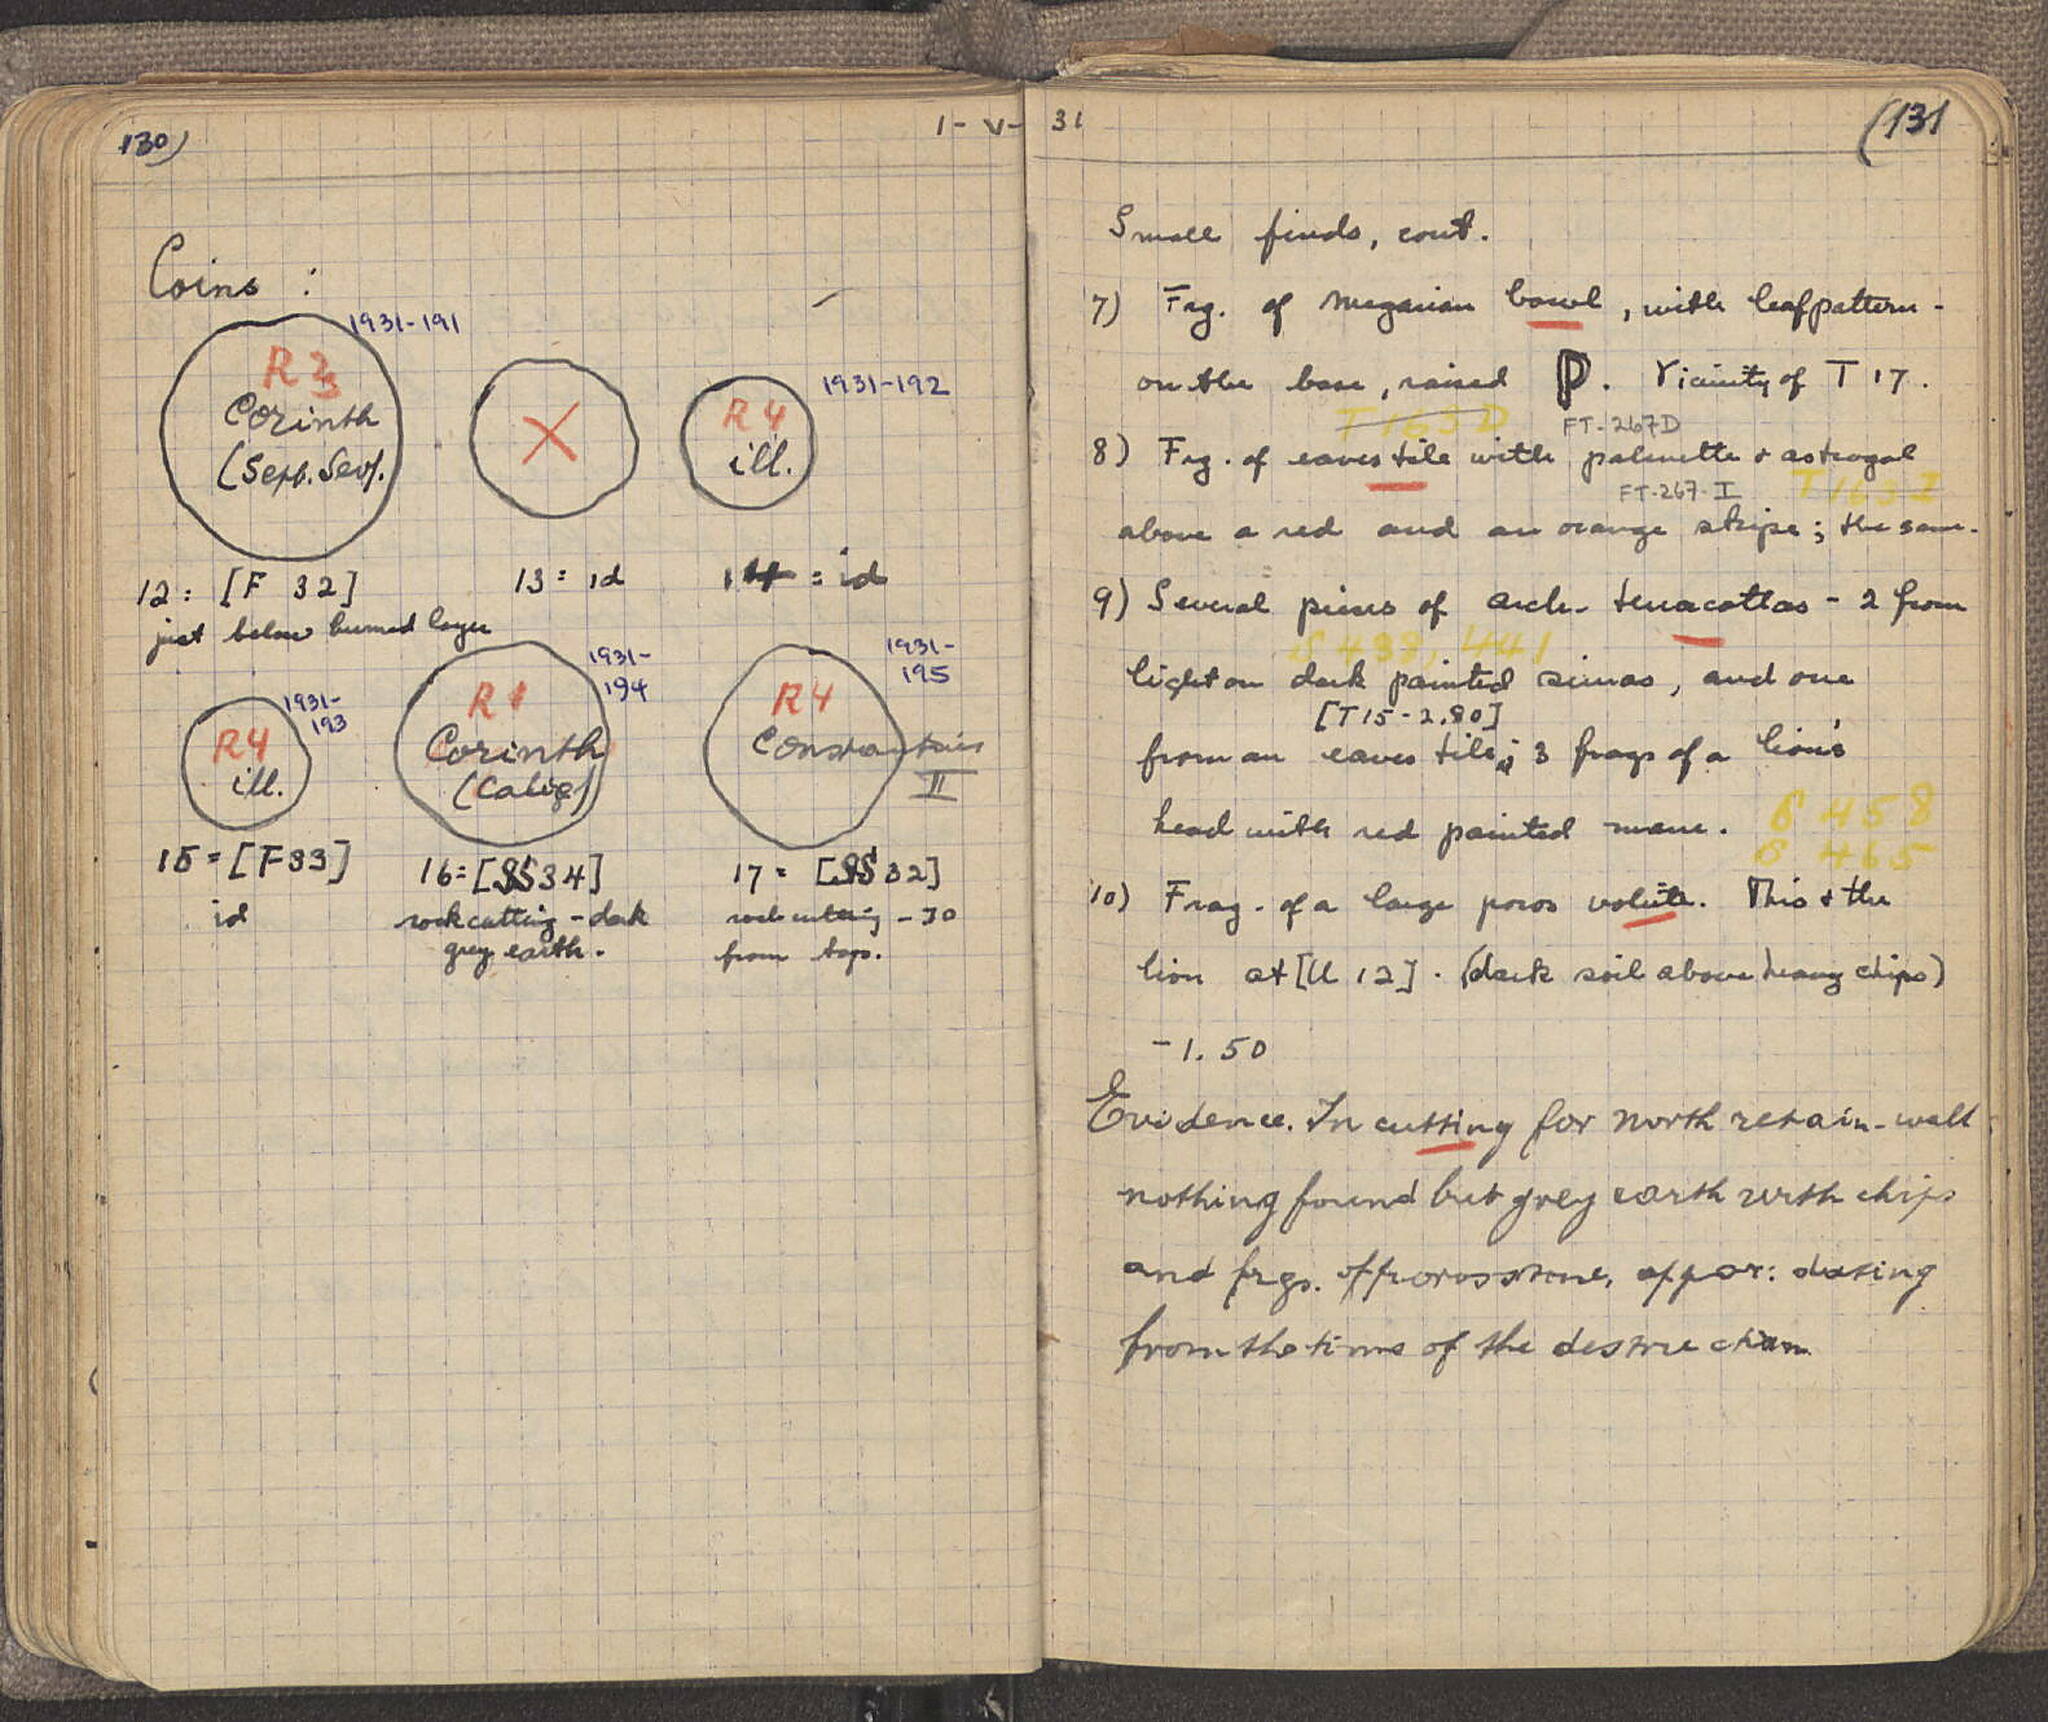 130)
1-V-
Coins :
1931-191
R 3
Corinth
(Sept. Sev).
X
1931-192
R4
ill.
12 = [F 32]
just below burned layer
13 = id
14 = id
1931-
193
R4
ill.
1931-
194
R1
Corinth
(Calig)
1931-
195
R4
Constantius
II
15 = [F33]
id
16 = [SS34]
rock cutting - dark
grey earth.
17 = [SS32]
rock cutting - 30
from top.
31
(131
Small finds, cont.
7) Frg. of Megarian bowl, with leafpattern -
on the base, raised P. Vicinity of T 17.
T 163 D
FT-267D
8) Frg. of eaves tile with palmette & astragal
FT-267-I
T 163 I
above a red and an orange stripe; the same.
9) Several pieces of arch. terracottas - 2 from
S 438, 441
light on dark painted simas, and one
[T15-2.80]
from an eaves tile; 3 frags of a lion's
head with red painted mane.
S 458
S 465
10) Frag. of a large poros volute. This & the
lion at [U 12]. (dark soil above heavy chips)
-1.50
Evidence. In cutting for north retain-wall
nothing found but grey earth with chips
and frgs. of poros stone, appar: dating
from the time of the destruction